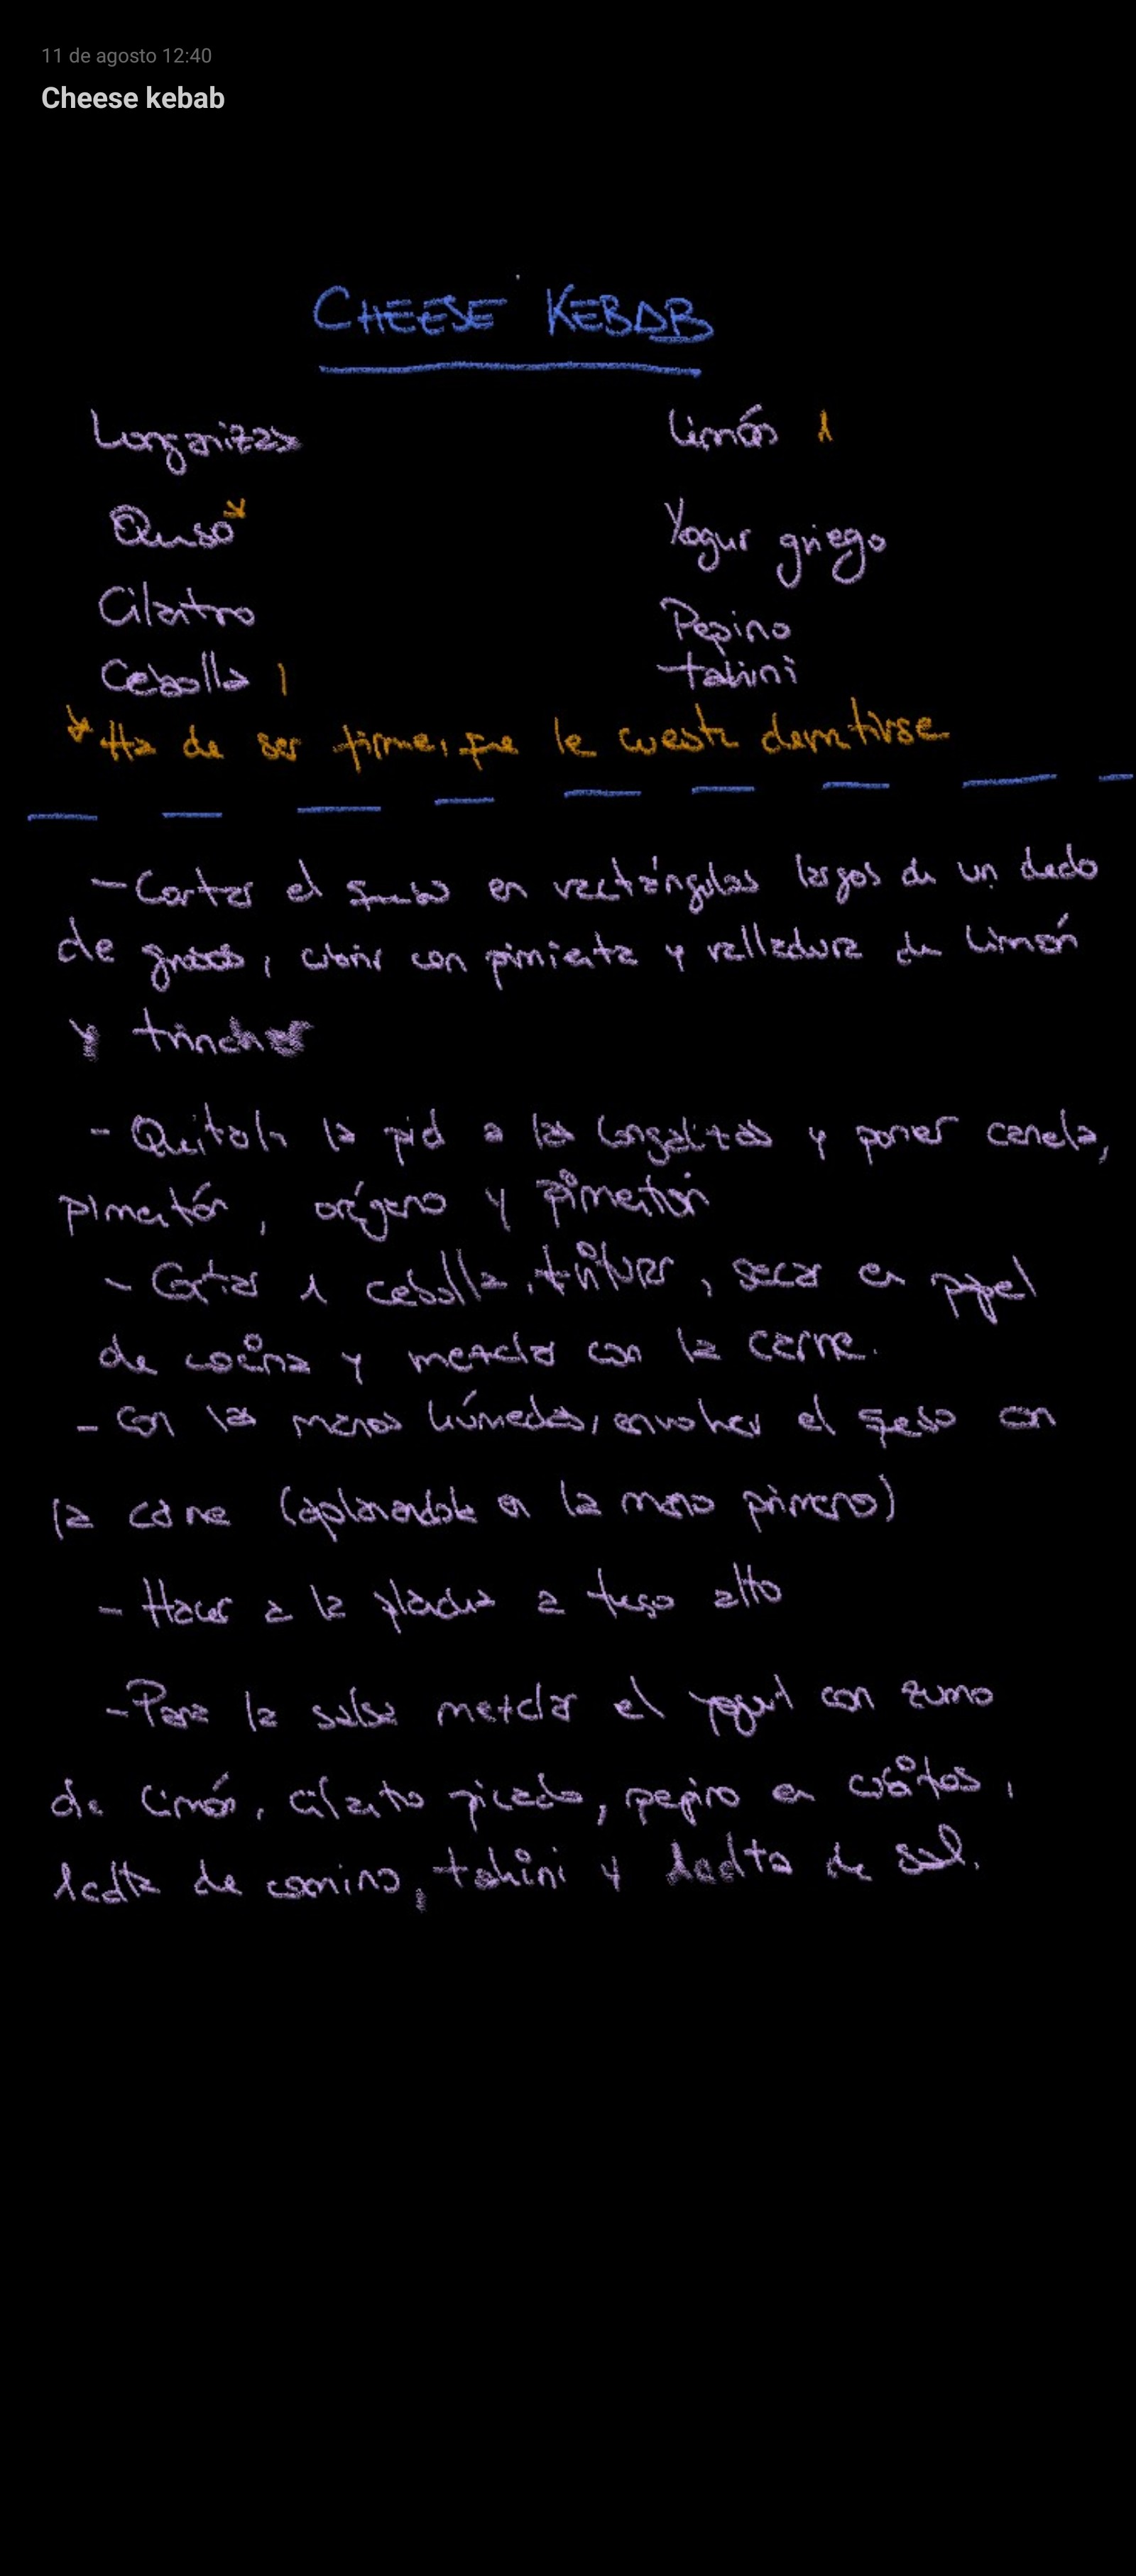 11 de agosto 12:40
Cheese kebab
CHEESE KEBAB
Longanizas
Limón 1
Queso*
Yogur griego
Cilantro
Pepino
Cebolla 1
tahini
* Ha de ser firme, que le cueste derretirse
- Cortar el queso en rectángulos largos de un dedo
de grosor, cubrir con pimienta y ralladura de limón
y trinchar
- Quitarle la piel a las longanizas y poner canela,
pimentón, orégano y pimentón
- Cortar 1 cebolla, triturar, secar en papel
de cocina y mezclar con la carne.
- Con las manos húmedas, envolver el queso con
la carne (aplanandola en la mano primero)
- Hacer a la plancha a fuego alto
- Para la salsa mezclar el yogur con zumo
de limón, cilantro picado, pepino en cubitos,
de comino, tahini y de sal.